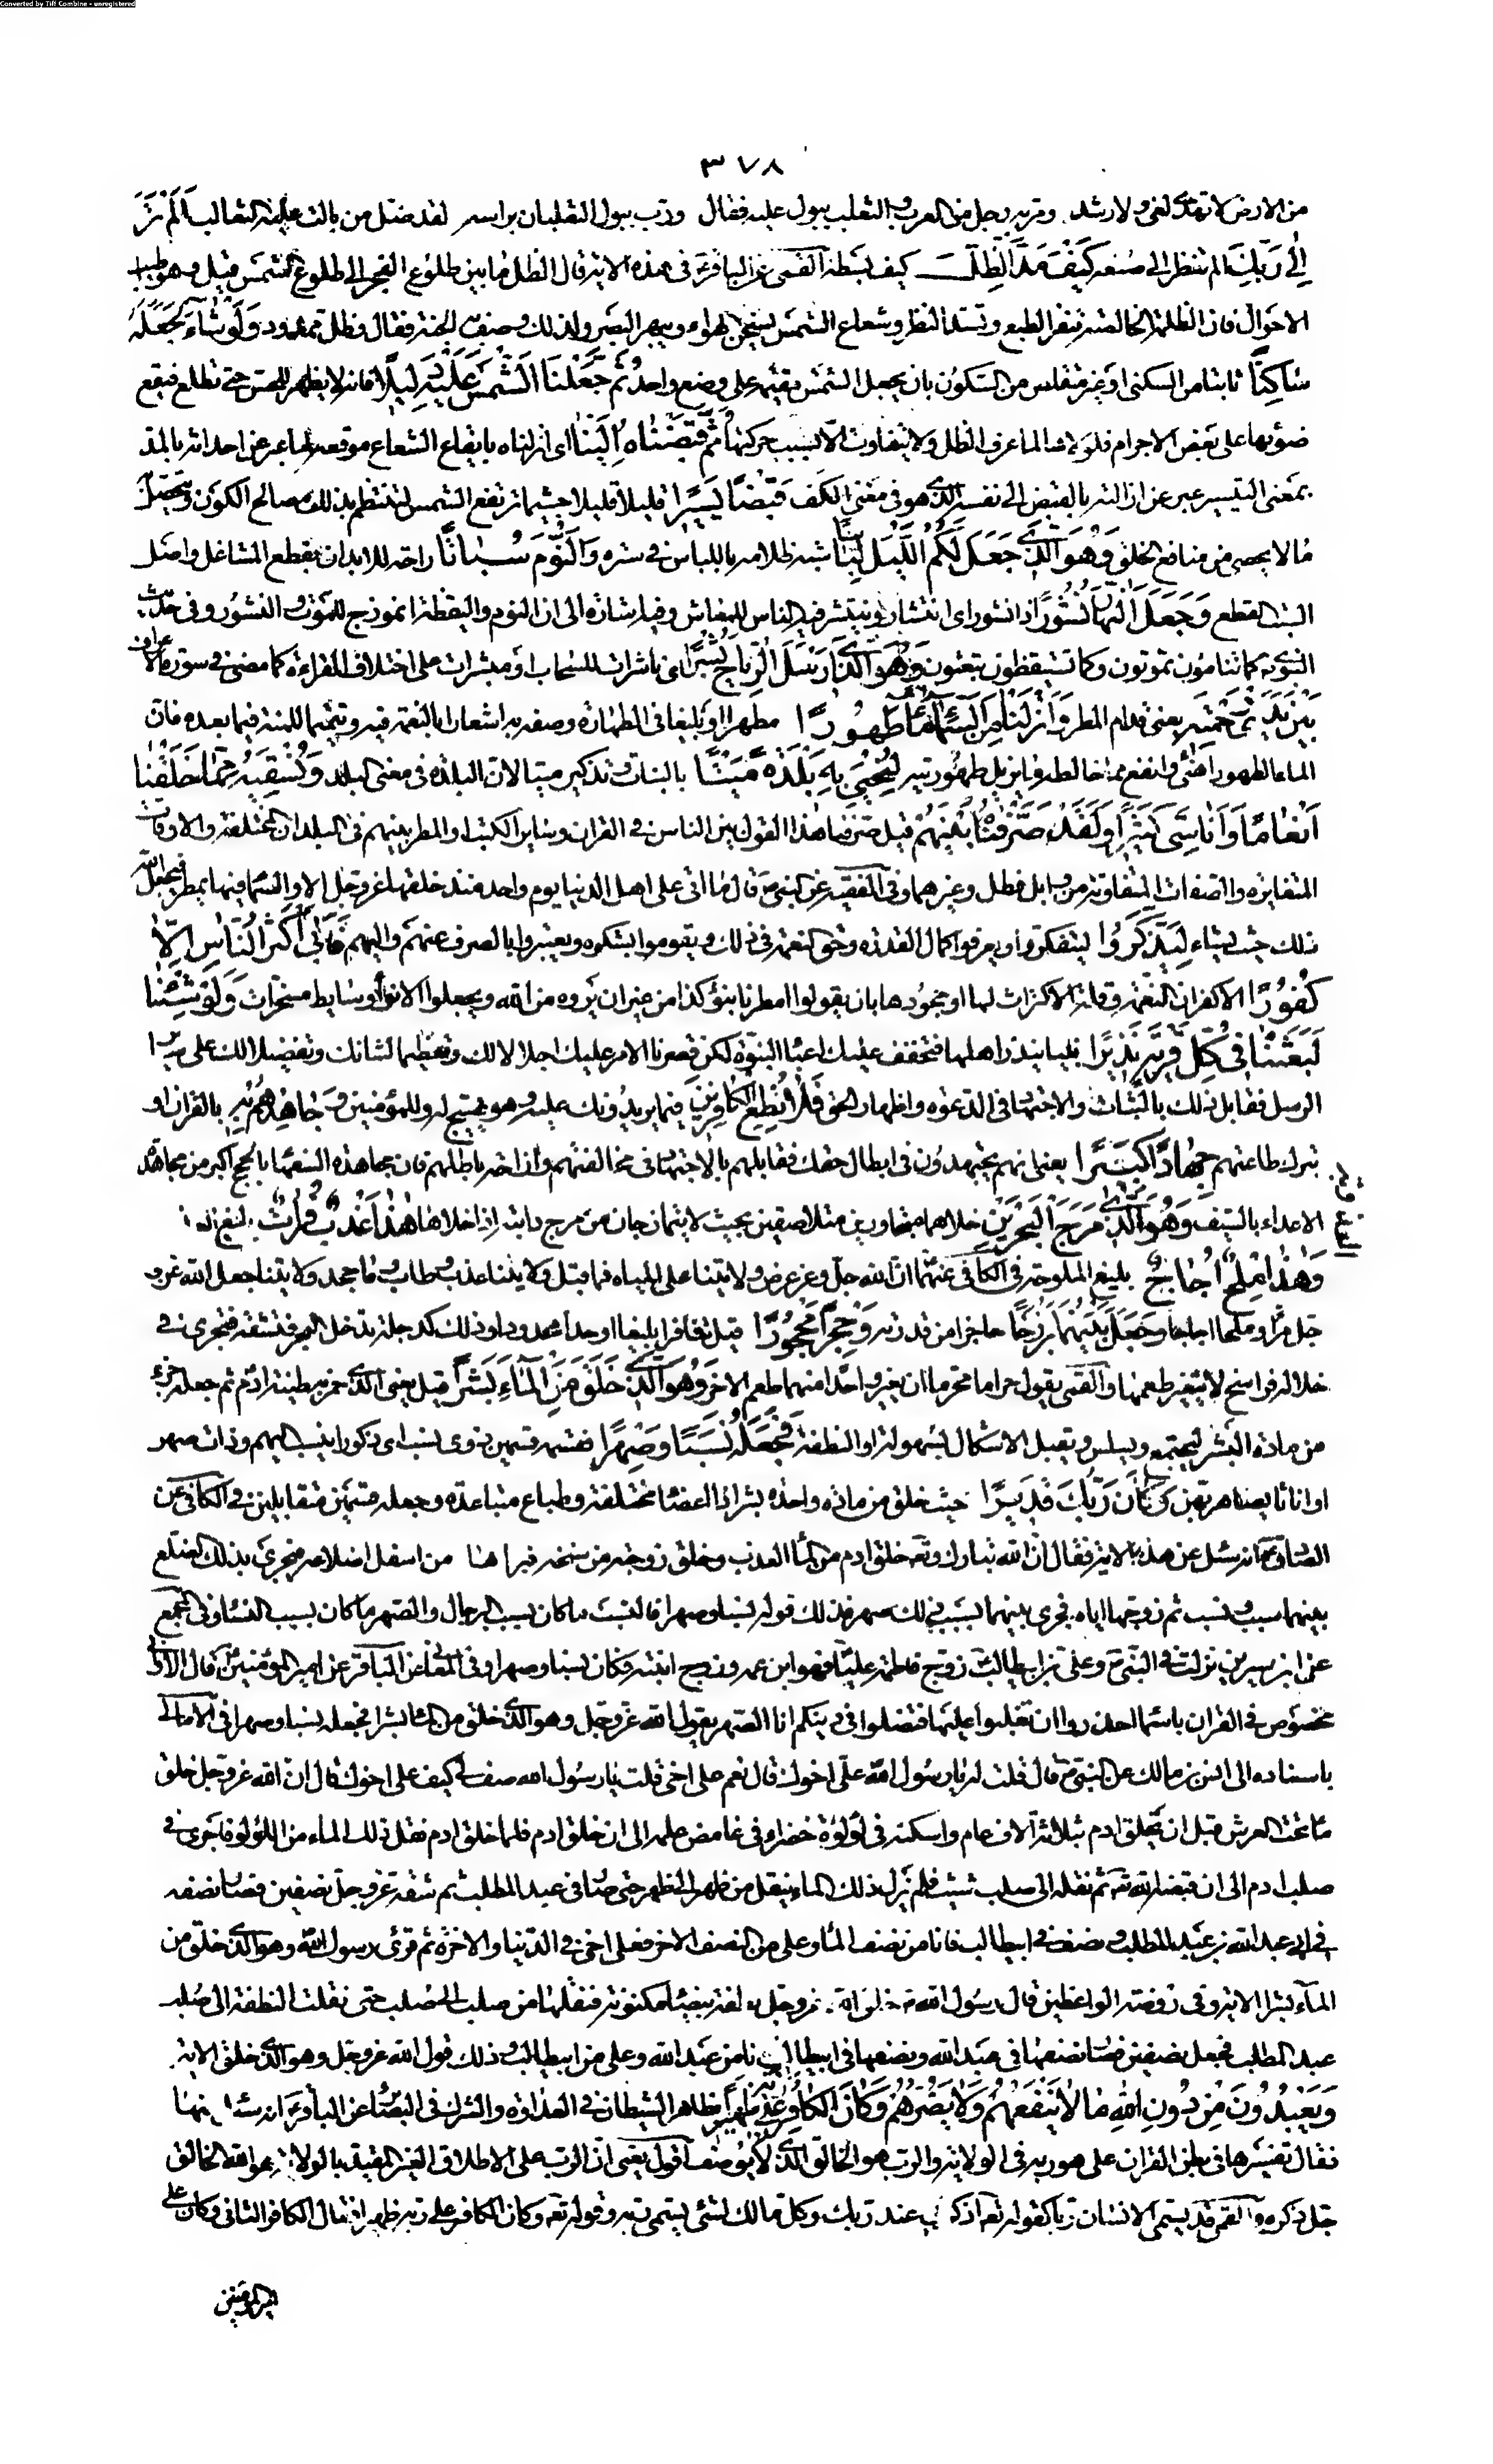 Converted by Tiff Combine - unregistered
٣٧٨
من الارض لا تهتدى لغى ولا رشد ومر به رجل من العرب والثعلب يبول عليه فقال ورب يبول الثعلبان براسه لقد ضل من بالت عليه الثعالب اَلَمْ تَرَ
اِلىٰ رَبِّكَ الم تنظر الى صنعه كَيْفَ مَدَّ الظِّلَّ كيف بسطه القمى عن الباقر ع فى هذه الاية قال الظل ما بين طلوع الفجر الى طلوع الشمس قيل وهو اطيب
الاحوال فان الظلمة الخالصة تنفر الطبع وتسد النظر وشعاع الشمس يسخن الهواء ويبهر البصر ولذلك وصف به الجنة فقال وظل ممدود وَلَوْ شٰاءَ لَجَعَلَهُ
سٰاكِناً ثابتا من السكنى او غير متقلص من السكون بان يجعل الشمس مقيمة على وضع واحد ثُمَّ جَعَلْنَا الشَّمْسَ عَلَيْهِ دَلِيلاً فانه لا يظهر للحس حتى تطلع فيقع
ضوئها على بعض الاجرام فلولاها لما عرف الظل ولا يتفاوت الا بسبب حركتها ثُمَّ قَبَضْنٰاهُ اِلَيْنٰا اى ازلناه بايقاع الشعاع موقعه لما عبر عن احداثه بالمد
بمعنى التيسير عبر عن ازالته بالقبض الى نفسه الذى هو فى معنى الكف قَبْضاً يَسِيراً قليلا قليلا حيثما ترتفع الشمس لتنتظم بذلك مصالح الكون ويتحصل به
ما لا يحصى من منافع الخلق وَهُوَ الَّذِى جَعَلَ لَكُمُ اللَّيْلَ لِبٰاساً شبه ظلامه باللباس فى ستره وَالنَّوْمَ سُبٰاتاً راحة للابدان بقطع المشاغل واصل
السبت القطع وَجَعَلَ النَّهٰارَ نُشُوراً ذا نشور اى انتشار وينتشر فيه الناس للمعاش وفيه اشارة الى ان النوم واليقظة انموذج للموت والنشور وفى حديث
النبوى ص كما تنامون تموتون وكما تستيقظون تبعثون وَهُوَ الَّذِى اَرْسَلَ الرِّيٰاحَ بُشْراً اى ناشرات للسحاب او مبشرات على اختلاف القراءة كما مضى فى سورة الاعراف
بَيْنَ يَدَىْ رَحْمَتِهِ يعنى قدام المطر وَاَنْزَلْنٰا مِنَ السَّمٰاءِ مٰاءً طَهُوراً مطهرا او بليغا فى الطهارة وصفه به اشعارا بالنعمة فيه وتتميما للمنة فيما بعده فان
الماء الطهور اهنئ وانفع مما خالطه ما يزيل طهوريته لِنُحْيِىَ بِهِ بَلْدَةً مَيْتاً بالنبات وتذكير ميتا لان البلدة فى معنى البلد وَنُسْقِيَهُ مِمّٰا خَلَقْنٰا
اَنْعٰاماً وَاَنٰاسِىَّ كَثِيراً وَلَقَدْ صَرَّفْنٰاهُ بَيْنَهُمْ قيل صرفنا هذا القول بين الناس فى القران وسائر الكتب او المطر بينهم فى البلدان المختلفة والاوقات
المتغايرة والصفات المتفاوتة من وابل وطل وغيرهما وفى الفقيه عن النبى ص قال ما اتى على اهل الدنيا يوم واحد منذ خلقها عز وجل الا والسماء فيها تمطر فيجعل الله
ذلك حيث يشاء لِيَذَّكَّرُوا ليتفكروا ويعرفوا كمال القدرة وحق النعمة فى ذلك ويقوموا بشكره ويعتبروا بالصرف عنهم واليهم فَاَبىٰ اَكْثَرُ النّٰاسِ اِلّٰا
كُفُوراً الا كفران النعمة وقلة الاكتراث لها او جحودها بان يقولوا امطرنا بنوء كذا من غير ان يروه من الله ويجعلوا الانواء وسايط مسخرات وَلَوْ شِئْنٰا
لَبَعَثْنٰا فِى كُلِّ قَرْيَةٍ نَذِيراً نبيا ينذر اهلها فتخفف عليك اعباء النبوة لكن قصرنا الامر عليك اجلالا لك وتعظيما لشانك وتفضيلا لك على سائر
الرسل فقابل ذلك بالثبات والاجتهاد فى الدعوة واظهار الحق فَلٰا تُطِعِ الْكٰافِرِينَ فيما يريدونك عليه وهو تهييج له وللمؤمنين وَجٰاهِدْهُمْ بِهِ بالقران او
بترك طاعتهم جِهٰاداً كَبِيراً يعنى انهم يجتهدون فى ابطال حقك فقابلهم بالاجتهاد فى مخالفتهم وازاحة باطلهم فان مجاهدة السفهاء بالحجج اكبر من مجاهدة
الاعداء بالسيف وَهُوَ الَّذِى مَرَجَ الْبَحْرَيْنِ خلاهما متجاورين متلاصقين بحيث لا يتمازجان من مرج دابته اذا خلاها هٰذٰا عَذْبٌ فُرٰاتٌ
وَهٰذٰا مِلْحٌ اُجٰاجٌ بليغ الملوحة فى الكافى عنهما ان الله جل وعز عرض ولايتنا على المياه فما قبل ولايتنا عذب وطاب وما جحد ولايتنا جعله الله عز و
جل مرا وملحا اجاجا وَجَعَلَ بَيْنَهُمٰا بَرْزَخاً حاجزا من قدرته وَحِجْراً مَحْجُوراً قيل تنافرا بليغا او حدا محدودا وذلك كدجلة تدخل البحر فتشقه فتجرى فى
خلاله فراسخ لا يتغير طعمها والقمى يقول حراما محرما ان يغير واحدا منهما طعم الاخر وَهُوَ الَّذِى خَلَقَ مِنَ الْمٰاءِ بَشَراً قيل يعنى الذى خمر به طينة ادم ثم جعله جزء
من مادة البشر ليجتمع ويسلس ويقبل الاشكال بسهولة او النطفة فَجَعَلَهُ نَسَباً وَصِهْراً فقسمه قسمين ذوى نسب اى ذكورا ينسب اليهم وذوات صهر
اى اناثا يصاهر بهن وَكٰانَ رَبُّكَ قَدِيراً حيث خلق من مادة واحدة بشرا ذا اعضاء مختلفة وطباع متباعدة وجعله قسمين متقابلين وفى الكافى عن
الصادق ع انه سئل عن هذه الاية فقال ان الله تبارك وتعه خلق ادم من الماء العذب وخلق زوجته من سنخه فبراها من اسفل اضلاعه فجرى بذلك الضلع
بينهما سبب ونسب ثم زوجها اياه فجرى بينهما بسبب ذلك صهر فذلك قوله نسبا وصهرا فالنسب ما كان بسبب الرجال والصهر ما كان بسبب النساء وفى المجمع
عن ابن سيرين نزلت فى النبى ص وعلى بن ابيطالب ع زوج فاطمة عليا فهو ابن عمه وزوج ابنته فكان نسبا وصهرا وفى المعانى عن الباقر عن امير المؤمنين ع قال الا وانى
مخصوص فى القران باسماء احذروا ان تغلبوا عليها فتضلوا فى دينكم انا الصهر يقول الله عز وجل وهو الذى خلق من الماء بشرا فجعله نسبا وصهرا وفى الامالى
باسناده الى انس بن مالك عن النبى ص قال قلت له يا رسول الله على اخوك قال نعم على اخى قلت يا رسول الله صف لى كيف على اخوك قال ان الله عز وجل خلق
ماء تحت العرش قبل ان يخلق ادم بثلاثة آلاف عام واسكنه فى لؤلؤة خضراء فى غامض علمه الى ان خلق ادم فلما خلق ادم نقل ذلك الماء من اللؤلؤة فاجراه فى
صلب ادم الى ان قبضه الله ثم نقله الى صلب شيث فلم يزل ذلك الماء ينتقل من ظهر الى ظهر حتى صار فى عبد المطلب ثم شقه عز وجل نصفين فصار نصفه
فى ابى عبد الله بن عبد المطلب ونصف فى ابيطالب فانا من نصف الماء وعلى من النصف الاخر فعلى اخى فى الدنيا والاخرة ثم قرئ رسول الله وهو الذى خلق من
الماء بشرا الاية وفى روضة الواعظين قال رسول الله ص خلق الله عز وجل نطفة بيضاء مكنونة فنقلها من صلب الى صلب حتى نقلت النطفة الى صلب
عبد المطلب فجعل نصفين فصار نصفها فى عبد الله ونصفها فى ابيطالب فانا من عبد الله وعلى من ابيطالب وذلك قول الله عز وجل وهو الذى خلق الاية
وَيَعْبُدُونَ مِنْ دُونِ اللّٰهِ مٰا لٰا يَنْفَعُهُمْ وَلٰا يَضُرُّهُمْ وَكٰانَ الْكٰافِرُ عَلىٰ رَبِّهِ ظَهِيراً يظاهر الشيطان فى العداوة والشرك فى البصائر عن الباقر ع انه سئل عنها
فقال تفسيرها فى بطن القران على هو ربه فى الولاية والرب هو الخالق الذى لا يوصف اقول يعنى ان الرب على الاطلاق الغير المقيد بالولاية هو الله الخالق
جل ذكره والقمى قد يسمى الانسان ربا كقوله تعه اذكرنى عند ربك وكل مالك لشئ يسمى ربه وقوله تعه وكان الكافر على ربه ظهيرا فقال الكافر الثانى وكان على
امير المؤمنين